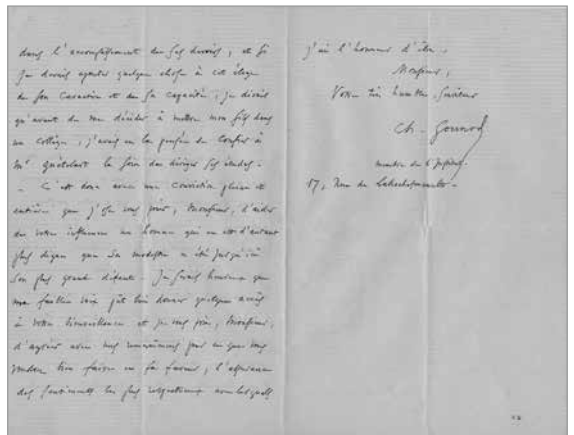 dans l'accomplissement de ses devoirs, et si
je devais ajouter quelque chose à cet éloge
de son caractère et de sa capacité, je dirais
qu'avant de me décider à mettre mon fils dans
un collège, j'avais eu la pensée de confier à
Mr le soin de diriger ses études -
- C'est donc avec une conviction pleine et
entière que j'ose vous prier, Monsieur, d'aider
de votre influence un homme qui en est d'autant
plus digne que sa modestie a été jusqu'ici
son plus grand - Je serais heureux que
ma faible voix pût lui donner quelque accès
à votre bienveillance et je vous prie, Monsieur,
d'agréer avec mes remerciements pour ce que vous
voudrez bien faire en sa faveur, l'assurance
des sentiments les plus respectueux avec lesquels
j'ai l'honneur d'être,
Monsieur,
Votre très humble serviteur
Ch. Gounod
membre de l'Institut.
17, Rue de Larochefoucauld -